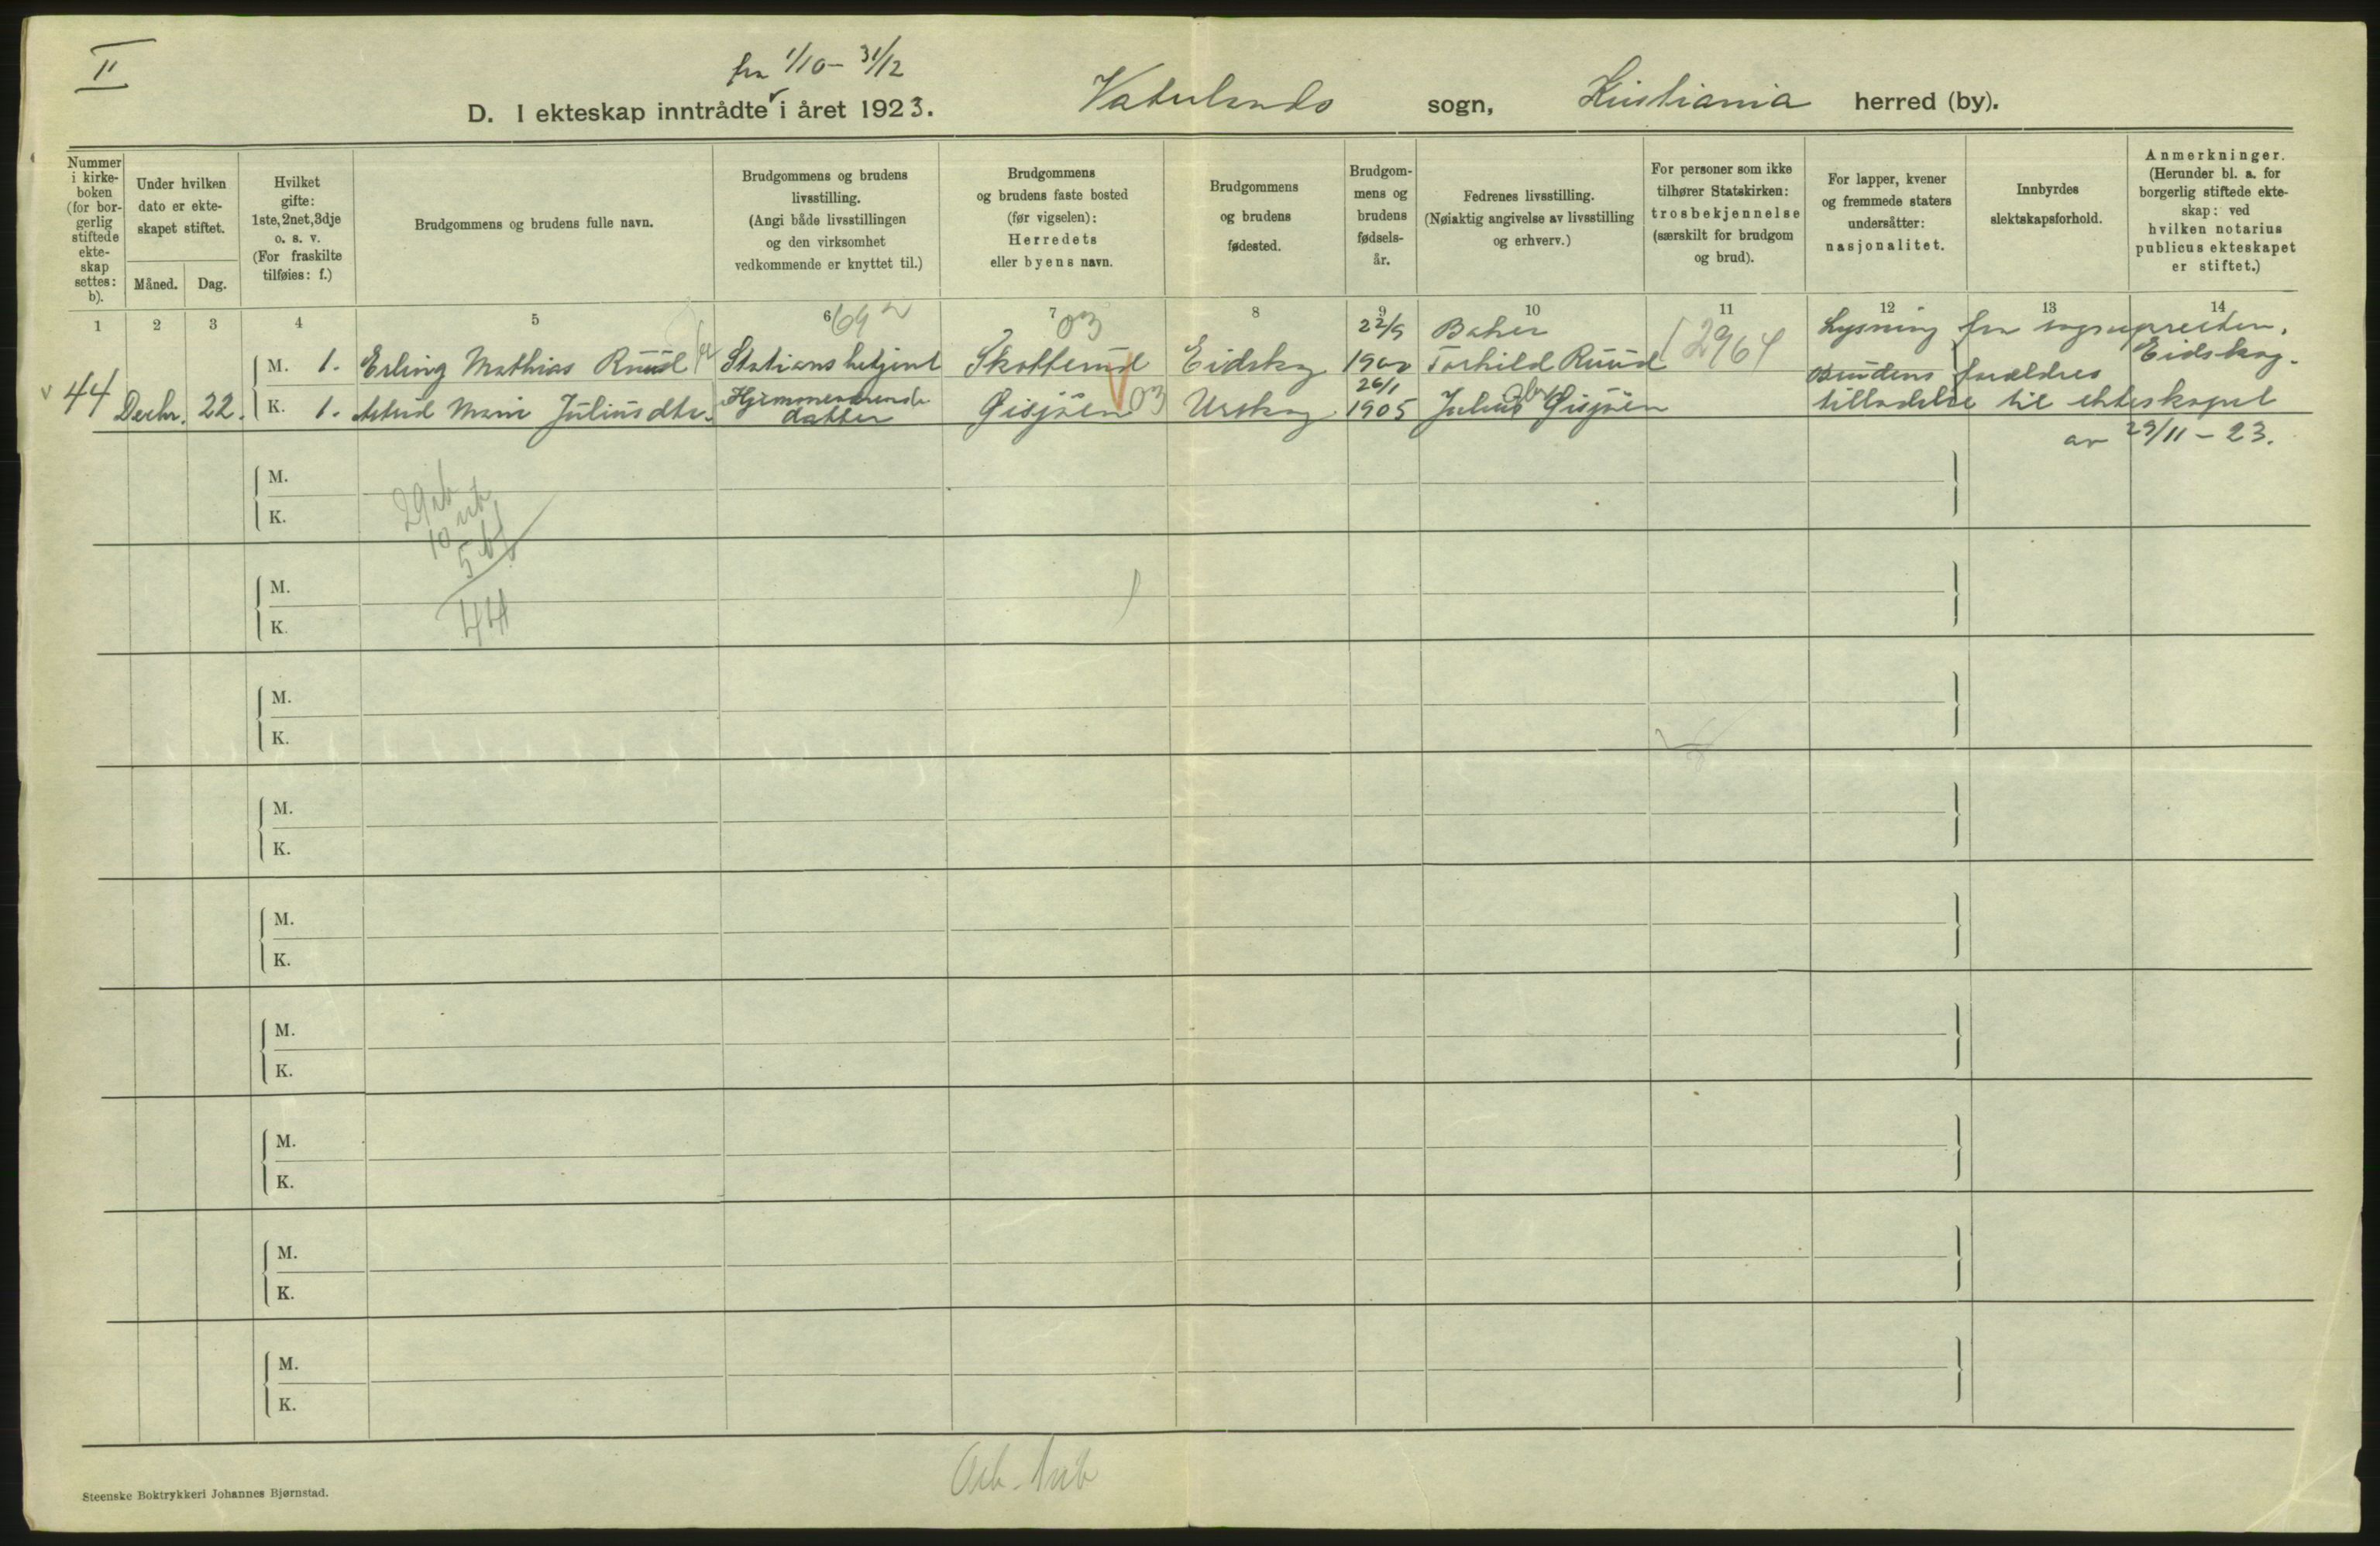 II
fra 1/10 - 31/12
D. I ekteskap inntrådte i året 1923. Vaterlands sogn, Kristiania herred (by).
Nummer i kirke- boken (for bor- gerlig stiftede ekte- skap settes: b).
Under hvilken dato er ekte- skapet stiftet.
Måned. Dag.
Hvilket gifte: 1ste, 2net, 3dje o. s. v. (For fraskilte tilføies: f.)
Brudgommens og brudens fulle navn.
Brudgommens og brudens livsstilling. (Angi både livsstillingen og den virksomhet vedkommende er knyttet til.)
Brudgommens og brudens faste bosted (før vigselen): Herredets eller byens navn.
Brudgommens og brudens fødested.
Brudgom- mens og brudens fødsels- år.
Fedrenes livsstilling. (Nøiaktig angivelse av livsstilling og erhverv.)
For personer som ikke tilhører Statskirken: trosbekjennelse (særskilt for brudgom og brud).
For lapper, kvener og fremmede staters undersåtter: nasjonalitet.
Innbyrdes slektskapsforhold.
Anmerkninger. (Herunder bl. a. for borgerlig stiftede ekte- skap: ved hvilken notarius publicus ekteskapet er stiftet.)
1 2 3 4 5 6 7 8 9 10 11 12 13 14
692 03 22/9 Baker Lysning fra sognepresten,
M. 1. Erling Mathias Ruud Stationsbetjent Skotterud Eidskog 1900 Torhild Ruud 2964 Eidskog.
Brudens forældres
44 Decbr. 22. K. 1. Astrid Marie Juliusdtr. Hjemmeværende datter Øisjøen 03 Urskog 26/1 1905 Julius Øisjøen tilladelse til ekteskapet
av 29/11 - 23.
M.
K.
29
10
5
44
M.
K.
M.
K.
M.
K.
M.
K.
M.
K.
M.
K.
M.
K.
M.
K.
Steenske Boktrykkeri Johannes Bjørnstad.